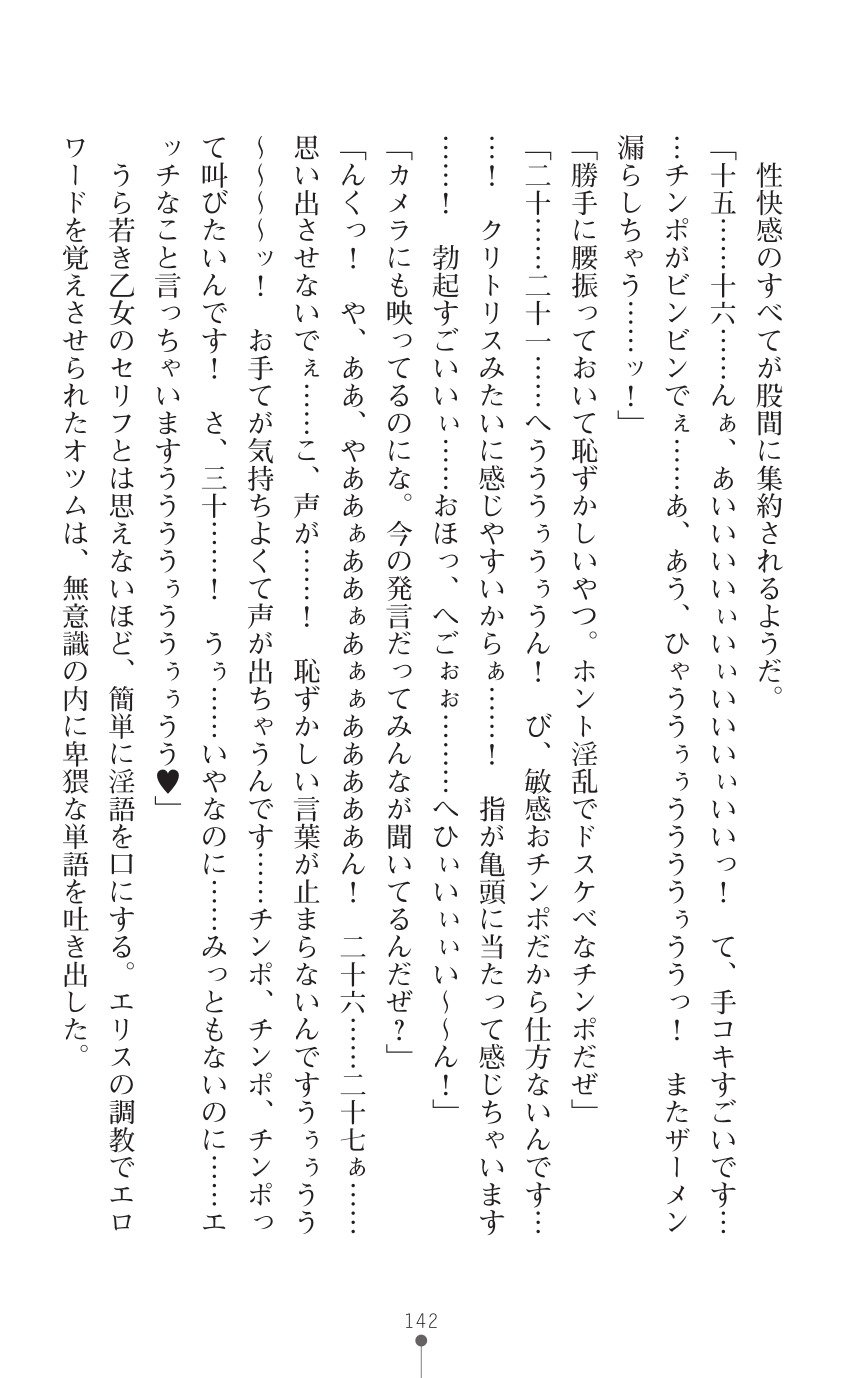 性快感のすべてが股間に集約されるようだ。
「十五……十六……んぁ、あいいいいぃいぃいいいぃいいっ！　て、手コキすごいです…
…チンポがビンビンでぇ……あ、あう、ひゃううぅぅうううぅううっ！　またザーメン
漏らしちゃう……ッ！」
「勝手に腰振っておいて恥ずかしいやつ。ホント淫乱でドスケベなチンポだぜ」
「二十……二十一……へうううぅうぅうん！　び、敏感おチンポだから仕方ないんです…
…！　クリトリスみたいに感じやすいからぁ……！　指が亀頭に当たって感じちゃいます
……！　勃起すごいいぃ……おほっ、へごぉぉ………へひぃいぃぃい～～ん！」
「カメラにも映ってるのにな。今の発言だってみんなが聞いてるんだぜ？」
「んくっ！　や、ああ、やああぁああぁあぁぁあああああん！　二十六……二十七ぁ……
思い出させないでぇ……こ、声が……！　恥ずかしい言葉が止まらないんですうぅぅうう
～～～～ッ！　お手てが気持ちよくて声が出ちゃうんです……チンポ、チンポ、チンポっ
て叫びたいんです！　さ、三十……！　うぅ……いやなのに……みっともないのに……エ
ッチなこと言っちゃいますううううぅううぅぅうう♥」
うら若き乙女のセリフとは思えないほど、簡単に淫語を口にする。エリスの調教でエロ
ワードを覚えさせられたオツムは、無意識の内に卑猥な単語を吐き出した。
142